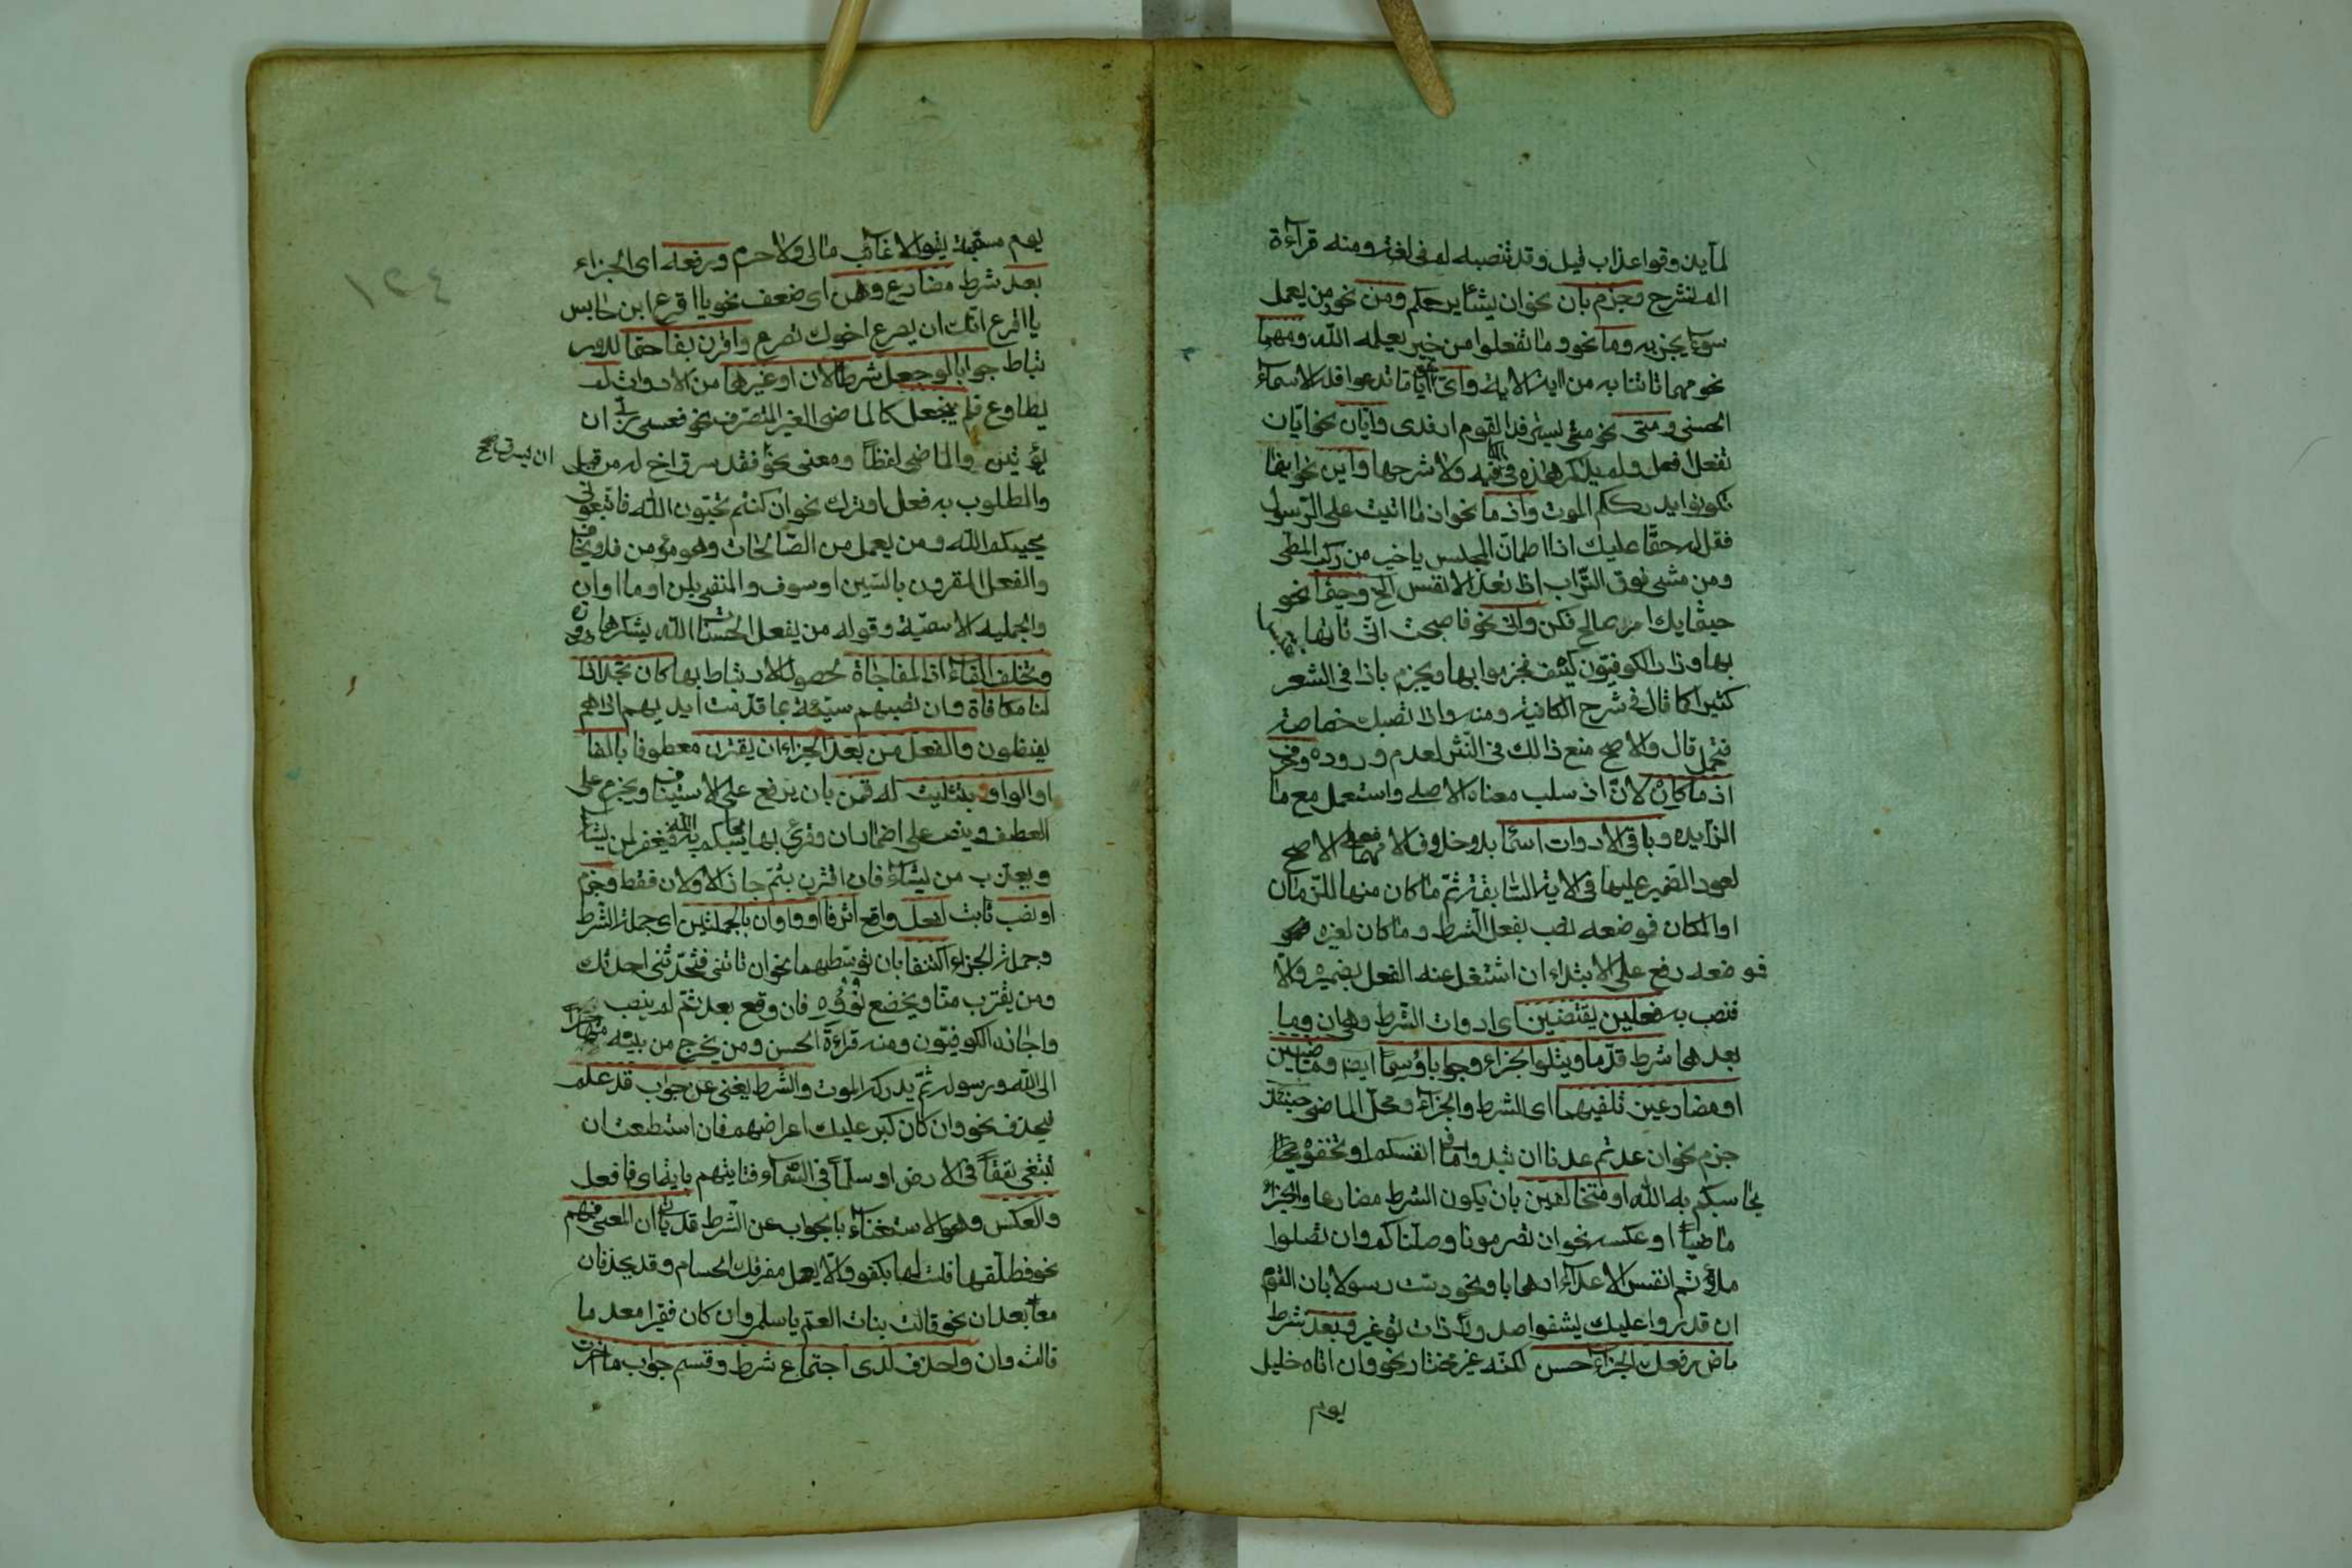 لما يذوقوا عذاب قيل وقد تنصبه لم فى لغة ومنه قراءة
الم نشرح وجزم بان نحو ان يشأ يرحمكم ومن نحو من يعمل
سوءا يجز به وما نحو وما تفعلوا من خير يعلمه الله ومهما
نحو مهما تاتنا به من اية الاية واى نحو ايا ما تدعوا فله الاسماء
الحسنى ومتى نحو متى يسترفد القوم ارفدى وايان نحو ايان
تفعل افعل ولم يذكر هذه فى الكافيه ولا شرحها واين نحو اينما
تكونوا يدرككم الموت واذ ما نحو اذ ما اتيت على الرسول
فقل له حقا عليك اذا اطمان المجلس يا خير من ركب المطى
ومن مشى فوق التراب اذ تعد الانفس الخ وحيثما نحو
حيثما يك امر صالح فكن وانى نحو فاصبحت انى تاتها
بها وزاد الكوفيون كيف فجزموا بها ويجزم باذا فى الشعر
كثيرا كما قال فى شرح الكافية ومنه واذا تصبك خصاصة
فتحمل قال والاصح منع ذالك فى النثر لعدم وروده وحرف
اذ ما كان لان اذ سلب معناه الاصلى واستعمل مع ما
الزايده وباقى الادوات اسما بلا خلاف الا مهما فعلى الاصح
لعود الضمير عليها فى الاية السابقة ثم ما كان منها للزمان
او المكان فموضعه نصب بفعل الشرط وما كان لغيره
فموضعه رفع على الابتداء ان اشتغل عنه الفعل بضميره والا
فنصب به فعلين يقتضين اى ادوات الشرط وهى ان وما
بعدها شرط قدما ويتلوا الجزاء وجوابا وسما ايضا وماضيين
او مضارعين تلفيهما اى الشرط والجزاء ومحل الماضى حينئذ
جزم نحو ان عدتم عدنا ان تبدوا ما فى انفسكم او تخفوه
يحاسبكم به الله او متخالفين بان يكون الشرط مضارعا والجزاء
ماضيا او عكسه نحو ان تصرمونا وصلناكم وان تصلوا
ملاتم انفس الاعداء ارهابا ونحو دست رسولا بان القوم
ان قدروا عليك يشفوا صدورا ذات توغير وبعد شرط
ماض رفعك الجزاء حسن لكنه غير مختار نحو وان اتاه خليل
يوم
١٢٤
يوم مسغبة يقول لا غائب مالى ولا حرم ورفعه اى الجزاء
بعد شرط مضارع وهن اى ضعف نحو يا اقرع ابن حابس
يا اقرع انك ان يصرع اخوك تصرع واقرن بفا حتما للار
تباط جوابا لو جعل شرطا لان او غيرها من الادوات لم
يطاوع فلم ينجعل كالماضى الغير المتصرف نحو فعسى ربى ان
يؤتين والماضى لفظا ومعنى نحو فقد سرق اخ له من قبل
ان يسرق صح
والمطلوب به فعل او ترك نحو ان كنتم تحبون الله فاتبعونى
يحببكم الله ومن يعمل من الصالحات وهو مؤمن فلا يخاف
والفعل المقرون بالسين او سوف والمنفى بلن او ما او ان
والجمله الاسمية وقوله من يفعل الحسنات الله يشكرها
وتخلف الفاء اذا المفاجاة لحصول الارتباط بها كان تجد اذا
لنا مكافاة وان تصبهم سيئة بما قدمت ايديهم اذا هم
يقنطون والفعل من بعد الجزاء ان يقترن معطوفا بالفا
او الواو بتثليث له قمن بان يرفع على الاستيناف ويجزم على
العطف وينصب على اضمار ان وقرئ بها يحاسبكم به الله فيغفر لمن يشاء
ويعذب من يشاء فان اقترن بثم جاز الاولان فقط وجزم
او نصب ثابت لفعل واقع اثر فا او واو ان بالجملتين اى جملة الشرط
وجملة الجزاء اكتنفا بان توسطهما نحو ان تاتنى فتحدثنى احدثك
ومن يقترب منا ويخضع نؤوه فان وقع بعد ثم لم ينصب
واجازه الكوفيون ومنه قراءة الحسن ومن يخرج من بيته مهاجرا
الى الله ورسوله ثم يدركه الموت والشرط يغنى عن جواب قد علم
فيحذف نحو وان كان كبر عليك اعراضهم فان استطعت ان
تبتغى نفقا فى الارض او سلما فى السماء فتاتيهم باية اى فافعل
والعكس وهو الاستغناء بالجواب عن الشرط قد ياتى ان المعنى فهم
نحو فطلقها فلست لها بكفو والا يعل مفرقك الحسام وقد يحذفان
معا بعد ان نحو قالت بنات العم يا سلمى وان كان فقيرا معدما
قالت وان واحذف لدى اجتماع شرط وقسم جواب ما اخرت